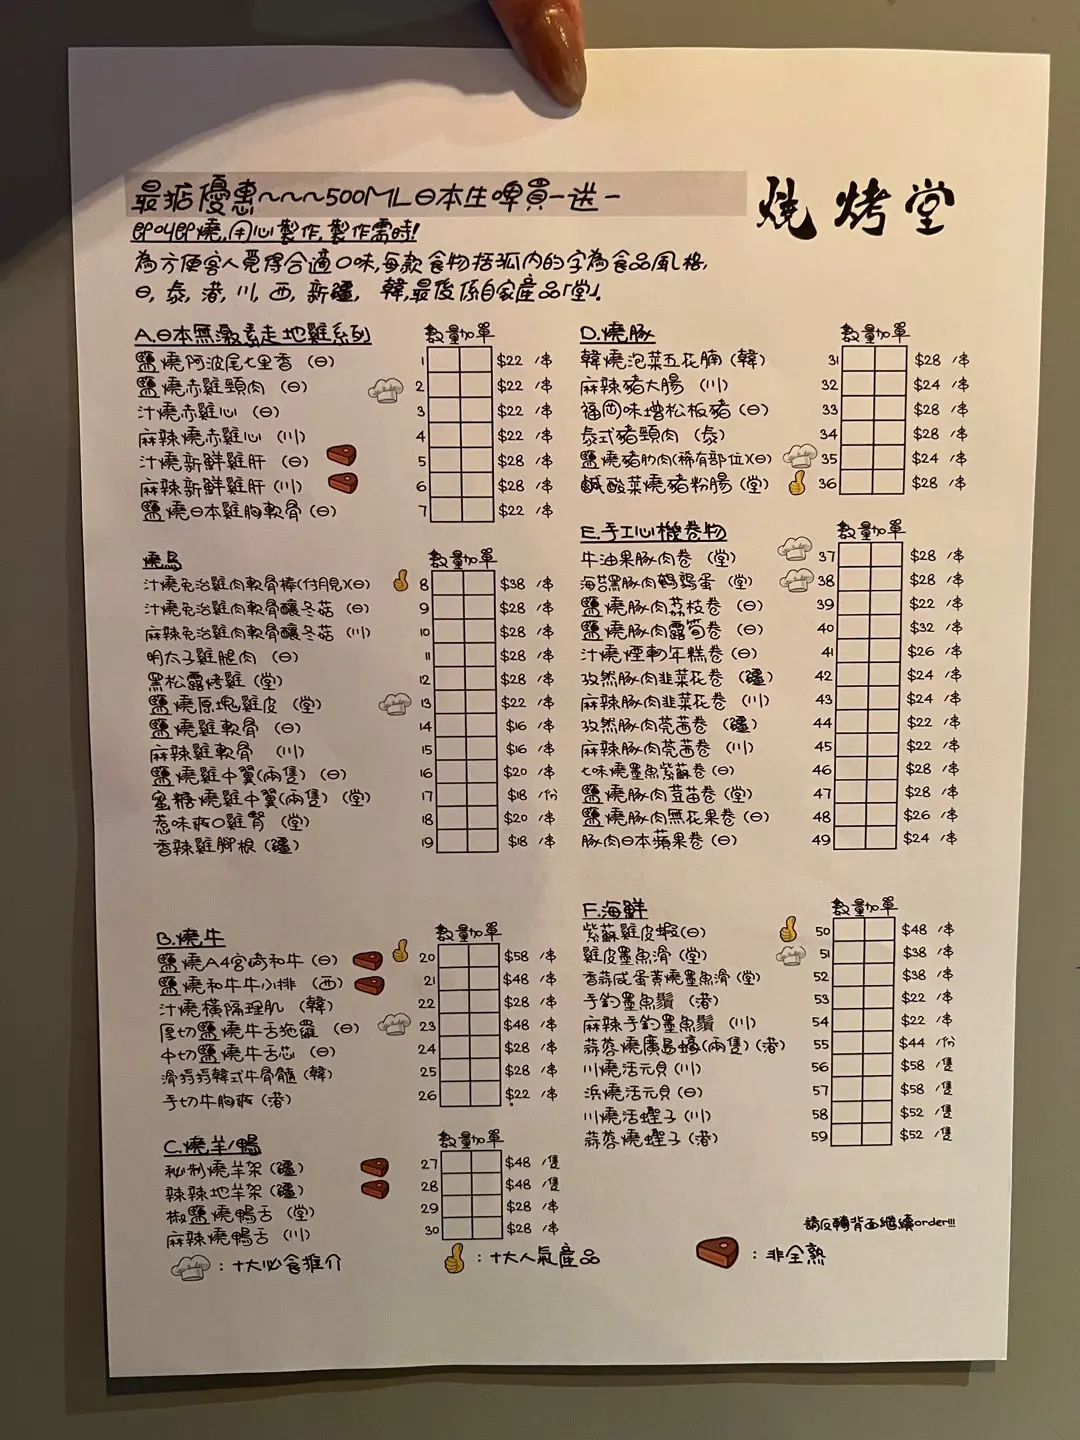 最掂優惠~~~500ML日本生啤買一送一
燒烤堂
即叫即燒,用心製作,製作需時!
為方便客人覓得合適口味,每款食物括孤内的字為食品風格,
日,泰,港,川,西,新疆, 韓,最後係自家產品「堂」.
A.日本無激素走地雞系列 數量 加單
鹽燒阿波尾七里香 (日) 1 $22 /串
鹽燒赤雞頸肉 (日) 2 $22 /串
汁燒赤雞心 (日) 3 $22 /串
麻辣燒赤雞心 (川) 4 $22 /串
汁燒新鮮雞肝 (日) 5 $28 /串
麻辣新鮮雞肝 (川) 6 $28 /串
鹽燒日本雞胸軟骨 (日) 7 $22 /串
燒鳥 數量 加單
汁燒免治雞肉軟骨棒(付月見)(日) 8 $38 /串
汁燒免治雞肉軟骨釀冬菇 (日) 9 $28 /串
麻辣免治雞肉軟骨釀冬菇 (川) 10 $28 /串
明太子雞腿肉 (日) 11 $28 /串
黑松露烤雞 (堂) 12 $28 /串
鹽燒原塊雞皮 (堂) 13 $22 /串
鹽燒雞軟骨 (日) 14 $16 /串
麻辣雞軟骨 (川) 15 $16 /串
鹽燒雞中翼(兩隻) (日) 16 $20 /串
蜜糖燒雞中翼(兩隻) (堂) 17 $18 /份
惹味爽口雞腎 (堂) 18 $20 /串
香辣雞腳根 (疆) 19 $18 /串
B.燒牛 數量 加單
鹽燒A4宮崎和牛 (日) 20 $58 /串
鹽燒和牛牛小排 (西) 21 $48 /串
汁燒橫隔理肌 (韓) 22 $28 /串
厚切鹽燒牛舌拖羅 (日) 23 $48 /串
中切鹽燒牛舌芯 (日) 24 $28 /串
滑捋捋韓式牛骨髓 (韓) 25 $28 /串
手切牛胸爽 (港) 26 $22 /串
C.燒羊/鴨 數量 加單
秘制燒羊架 (疆) 27 $48 /隻
辣辣地羊架 (疆) 28 $48 /隻
椒鹽燒鴨舌 (堂) 29 $28 /串
麻辣燒鴨舌 (川) 30 $28 /串
D.燒豚 數量 加單
韓燒泡菜五花腩 (韓) 31 $28 /串
麻辣豬大腸 (川) 32 $24 /串
福岡味增松板豬 (日) 33 $28 /串
泰式豬頸肉 (泰) 34 $28 /串
鹽燒豬肋肉(稀有部位)(日) 35 $24 /串
鹹酸菜燒豬粉腸 (堂) 36 $28 /串
E.手工心機卷物 數量 加單
牛油果豚肉卷 (堂) 37 $28 /串
海苔黑豚肉鵪鶉蛋 (堂) 38 $28 /串
鹽燒豚肉荔枝卷 (日) 39 $22 /串
鹽燒豚肉露筍卷 (日) 40 $32 /串
汁燒煙靭年糕卷 (日) 41 $26 /串
孜然豚肉韭菜花卷 (疆) 42 $24 /串
麻辣豚肉韭菜花卷 (川) 43 $24 /串
孜然豚肉莞茜卷 (疆) 44 $22 /串
麻辣豚肉莞茜卷 (川) 45 $22 /串
七味燒墨魚紫蘇卷 (日) 46 $28 /串
鹽燒豚肉荳苗卷 (堂) 47 $28 /串
鹽燒豚肉無花果卷 (日) 48 $26 /串
豚肉日本蘋果卷 (日) 49 $24 /串
F.海鮮 數量 加單
紫蘇雞皮蝦(日) 50 $48 /串
雞皮墨魚滑 (堂) 51 $38 /串
香蒜咸蛋黃燒墨魚滑 (堂) 52 $38 /串
手釣墨魚鬚 (港) 53 $22 /串
麻辣手釣墨魚鬚 (川) 54 $22 /串
蒜蓉燒廣島蠔(兩隻) (港) 55 $44 /份
川燒活元貝 (川) 56 $58 /隻
浜燒活元貝 (日) 57 $58 /隻
川燒活蟶子 (川) 58 $52 /隻
蒜蓉燒蟶子 (港) 59 $52 /隻
請反轉背面繼續order!!!
:十大必食推介 :十大人氣產品 :非全熟